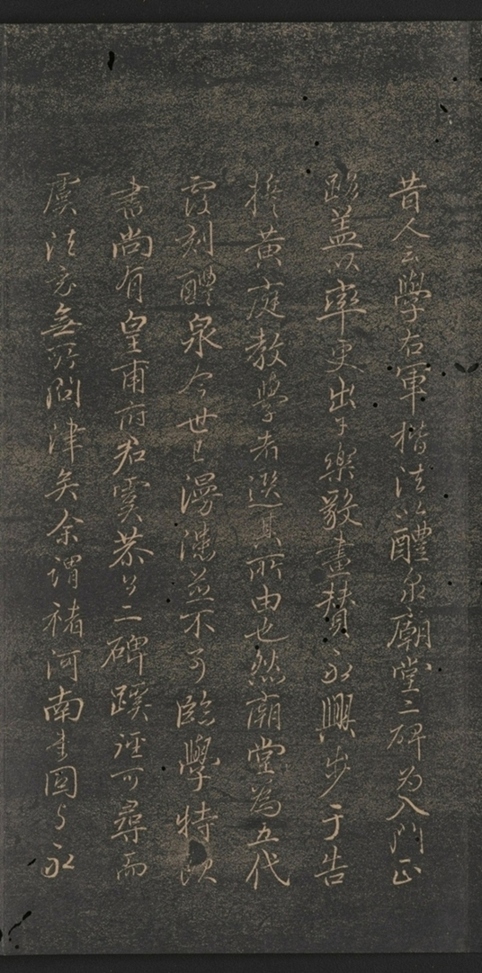 昔人云學右軍楷法以醴泉廟堂二碑為入門正
路盖以率更出于樂毅畫賛永興步于告
誓黄庭教學者遡其所由也然廟堂為五代
重刻醴泉今世已漫漶並不可臨學特歐
書尚有皇甫府君虞恭公二碑蹊迳可尋而
虞法忞無所問津矣余謂褚河南書固與永